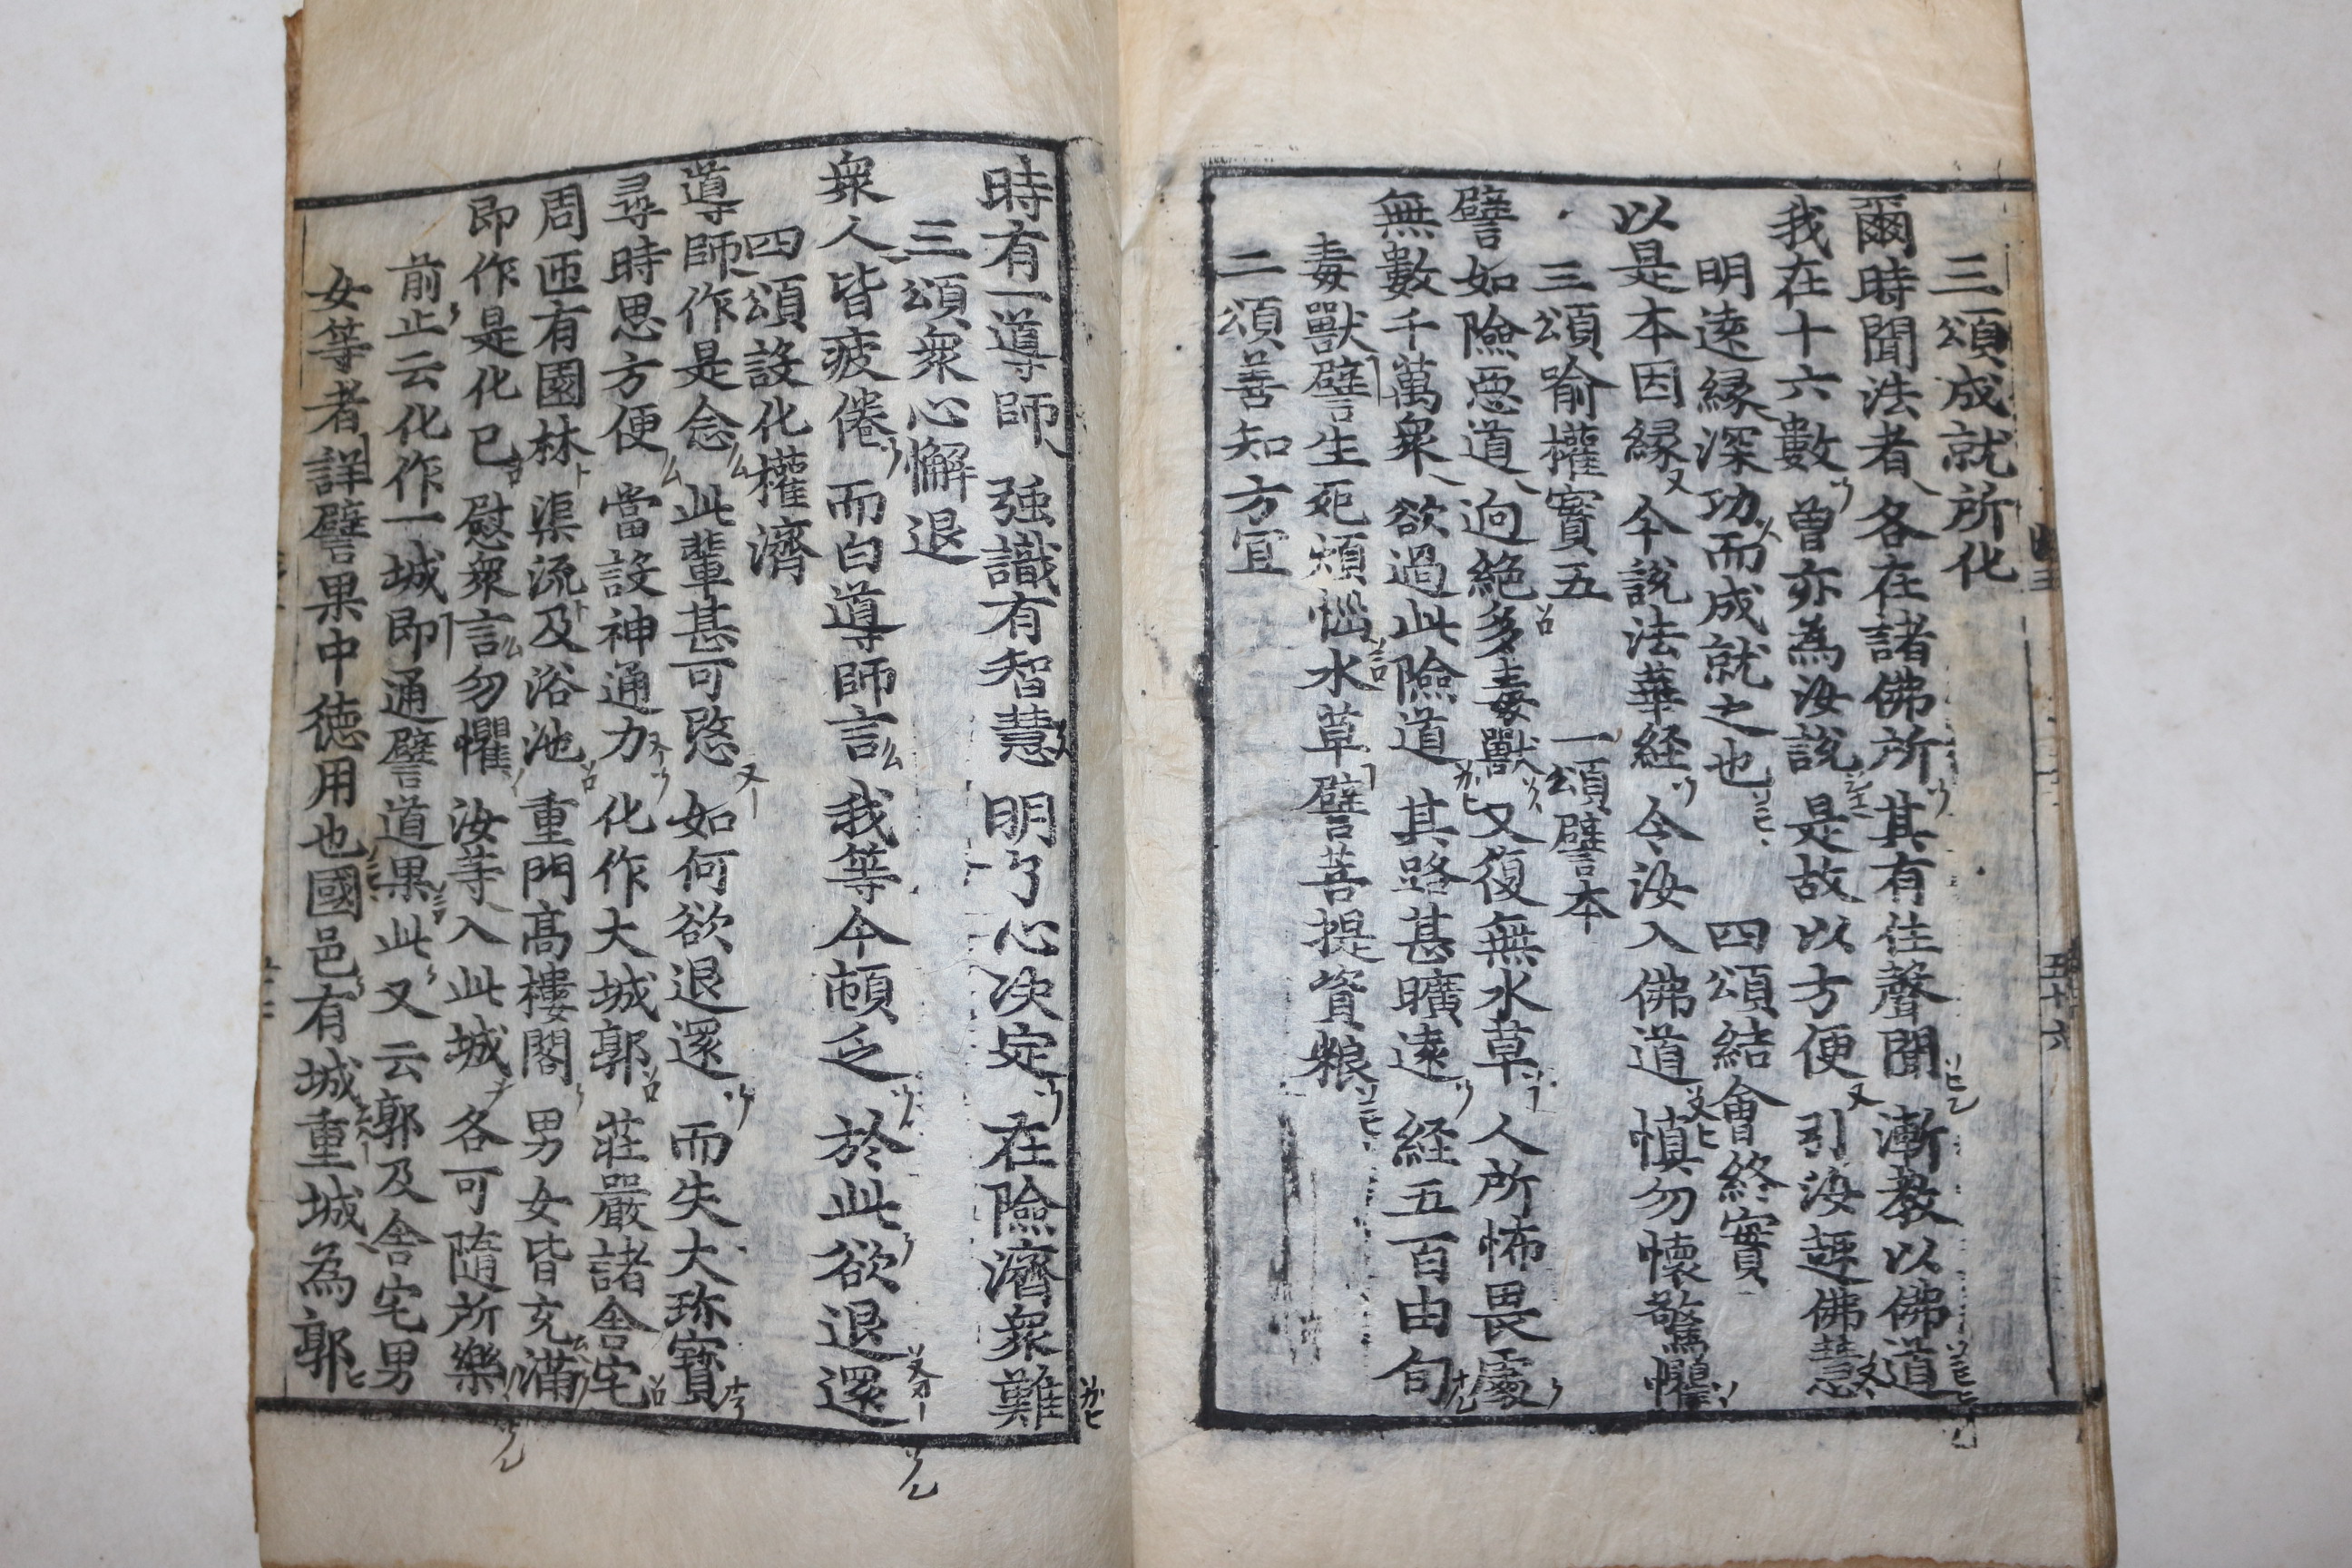 三頌成就所化
爾時聞法者各在諸佛所其有住聲聞漸教以佛道
我在十六數曾亦為汝說是故以方便引汝趣佛慧
明遠緣深功而成就之也 四頌結會終實
以是本因緣今說法華経令汝入佛道慎勿懷驚懼
三頌喻權實五 一頌譬本
譬如險惡道逈絕多毒獸又復無水草人所怖畏處
無數千萬衆欲過此險道其路甚曠遠経五百由旬
毒獸譬生死煩惱水草譬菩提資粮
二頌善知方宜
時有一導師強識有智慧明了心決定在險濟衆難
三頌衆心懈退
衆人皆疲倦而白導師言我等今頓乏於此欲退還
四頌設化權濟
導師作是念此輩甚可愍如何欲退還而失大珎寳
尋時思方便當設神通力化作大城郭莊嚴諸舍宅
周匝有園林渠流及浴池重門高樓閣男女皆充滿
即作是化已慰衆言勿懼汝等入此城各可隨所樂
前止云化作一城即通譬道果此又云郭及舍宅男
女等者詳譬果中德用也國邑有城重城為郭
五十六